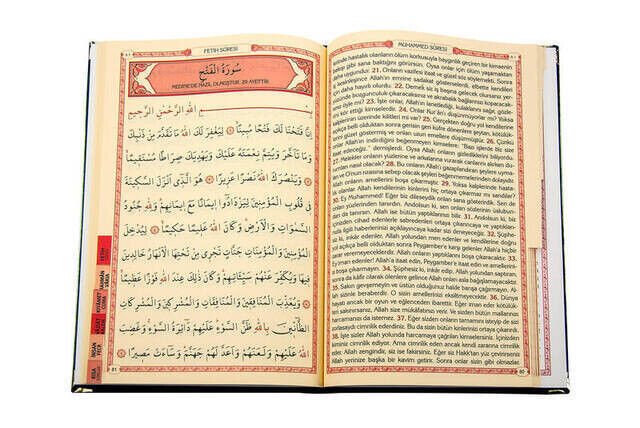 MUHAMMED SÛRESİ
rinde hastalık olanların ölüm korkusuyla baygınlık geçiren bir kimsenin
bakışı gibi sana baktığını görürsün. Oysa onlar için ölüm yaşamaktan
daha uygundur. 21. Onların vazifesi itaat ve güzel söz söylemektir. İş
kesinleşince Allah'ın emrine sadakat gösterselerdi, elbette kendileri
için daha hayırlı olurdu. 22. Demek siz iş başına gelecek olursanız yer-
yüzünde bozgunculuk çıkaracaksınız ve akrabalık bağlarınızı koparacak-
sınız öyle mi? 23. İşte onlar, Allah'ın lanetlediği, kulaklarını sağır, gözle-
rini kör ettiği kimselerdir. 24. Onlar Kur'an'ı düşünmüyorlar mı? Yoksa
kalplerinin üzerinde kilitleri mi var? 25. Gerçekten doğru yol kendilerine
açıkça belli olduktan sonra gerisin geri küfre dönenlere şeytan, kötülük-
lerini güzel göstermiş ve onları uzun emellere düşürmüştür. 26. Çünkü
onlar Allah'ın indirdiğini beğenmeyen kimselere: "Bazı işlerde biz size
itaat edeceğiz." demişlerdi. Oysa Allah onların gizlediklerini biliyordu.
27. Melekler onların yüzlerine ve arkalarına vurarak canlarını alırken du-
rumları nasıl olacak? 28. Bu onların Allah'ı gazaplandıran şeylere uyma-
ları ve O'nun rızasına sebep olacak şeyleri beğenmemelerinden dolayıdır.
Allah onların amellerini boşa çıkarmıştır. 29. Yoksa kalplerinde hasta-
lık olanlar Allah kendilerinin kinlerini hiç ortaya çıkarmaz mı sandılar?
30. Ey Muhammed! Eğer biz dileseydik onları sana gösterirdik. Sen de on-
ları yüzlerinden tanırdın. Andolsun ki, sen onları sözlerinin üslubun-
dan da tanırsın. Allah ise bütün yaptıklarınızı bilir. 31. Andolsun ki, biz
içinizden cihad edenlerle sabredenleri ortaya çıkarıncaya ve yaptıkları-
nızla ilgili haberlerinizi açıklayıncaya kadar sizi deneyeceğiz. 32. Şüphe-
siz ki, inkâr edenler, Allah yolundan men edenler ve kendilerine doğru
yol açıkça belli olduktan sonra Peygamber'e karşı gelenler Allah'a hiçbir
zarar veremeyeceklerdir. Allah onların yaptıklarını boşa çıkaracaktır. 33.
Ey iman edenler! Allah'a itaat edin, Peygamber'e itaat edin ve amellerini-
zi boşa çıkarmayın. 34. Şüphesiz ki, inkâr edip, Allah yolundan menden
sonra da kâfir olarak ölenlere gelince Allah onları asla bağışlamayacaktır.
35. Sakın gevşemeyin ve üstün olduğunuz halde barışa çağırmayın. Al-
lah sizinle beraberdir. O sizin amellerinizi eksiltmeyecektir. 36. Dünya
hayatı ancak bir oyun ve eğlenceden ibarettir. Eğer iman eder kötülük-
lerden sakınırsanız, Allah size mükâfatınızı verir. Ve sizden bütün mallarınızı
harcamanızı da istemez. 37. Eğer sizden onların tamamını isteyip de sizi
zorlasaydı cimrilik ederdiniz. Bu da sizin bütün kinlerinizi ortaya çıkarırdı.
38. İşte sizler Allah yolunda harcamaya çağrılan kimselersiniz. İçinizden
kiminiz cimrilik ediyor. Ama cimrilik eden ancak kendi zararına cimrilik
eder. Allah zengindir, siz ise fakirsiniz. Eğer siz Hakk'tan yüz çevirirseniz
Allah yerinize başka bir kavim getirir. Sonra onlar sizin gibi olmazlar.
80
FETİH SÛRESİ
سُورَةُ الْفَتْحِ
MEDİNE'DE NAZİL OLMUŞTUR. 29 AYETTİR.
بِسْمِ اللّٰهِ الرَّحْمٰنِ الرَّحِيمِ
اِنَّا فَتَحْنَا لَكَ فَتْحًا مُبِينًا لِيَغْفِرَ لَكَ اللّٰهُ مَا تَقَدَّمَ مِنْ ذَنْبِكَ
وَمَا تَاَخَّرَ وَيُتِمَّ نِعْمَتَهُ عَلَيْكَ وَيَهْدِيَكَ صِرَاطًا مُسْتَقِيمًا
وَيَنْصُرَكَ اللّٰهُ نَصْرًا عَزِيزًا هُوَ الَّذِي اَنْزَلَ السَّكِينَةَ
فِي قُلُوبِ الْمُؤْمِنِينَ لِيَزْدَادُوا اِيمَانًا مَعَ اِيمَانِهِمْ وَلِلّٰهِ جُنُودُ
السَّمٰوَاتِ وَالْاَرْضِ وَكَانَ اللّٰهُ عَلِيمًا حَكِيمًا لِيُدْخِلَ
الْمُؤْمِنِينَ وَالْمُؤْمِنَاتِ جَنَّاتٍ تَجْرِي مِنْ تَحْتِهَا الْاَنْهَارُ خَالِدِينَ
فِيهَا وَيُكَفِّرَ عَنْهُمْ سَيِّاٰتِهِمْ وَكَانَ ذٰلِكَ عِنْدَ اللّٰهِ فَوْزًا عَظِيمًا
وَيُعَذِّبَ الْمُنَافِقِينَ وَالْمُنَافِقَاتِ وَالْمُشْرِكِينَ وَالْمُشْرِكَاتِ
الظَّانِّينَ بِاللّٰهِ ظَنَّ السَّوْءِ عَلَيْهِمْ دَائِرَةُ السَّوْءِ وَغَضِبَ
اللّٰهُ عَلَيْهِمْ وَلَعَنَهُمْ وَاَعَدَّ لَهُمْ جَهَنَّمَ وَسَاءَتْ مَصِيرًا
81
FETİH
RAHMÂN
VÂKIA
KIYAMET
CUMA
NEBE
İNSAN
FECR
KISA